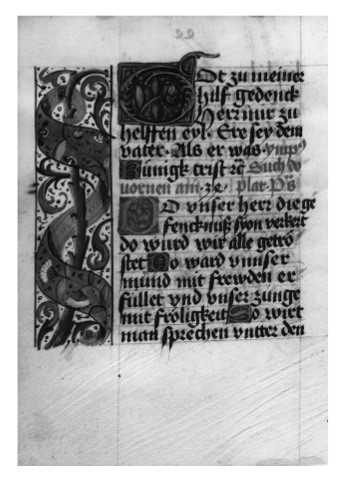 99
Got zu meiner
hilf gedenck
herr mir zu
helffen eyl. Ere sey dem
vater. Als er was. ymp9
Kunigk crist rc Such do
vornen ani. ze. plar. ps
DO vnser herr die ge
fencknuß syon verkert
do wurd wir alle getrö
stet Do ward vnnser
mund mit frewden er
füllet vnd vnser zunge
mit fröligkeit So wirt
man sprechen vntter den